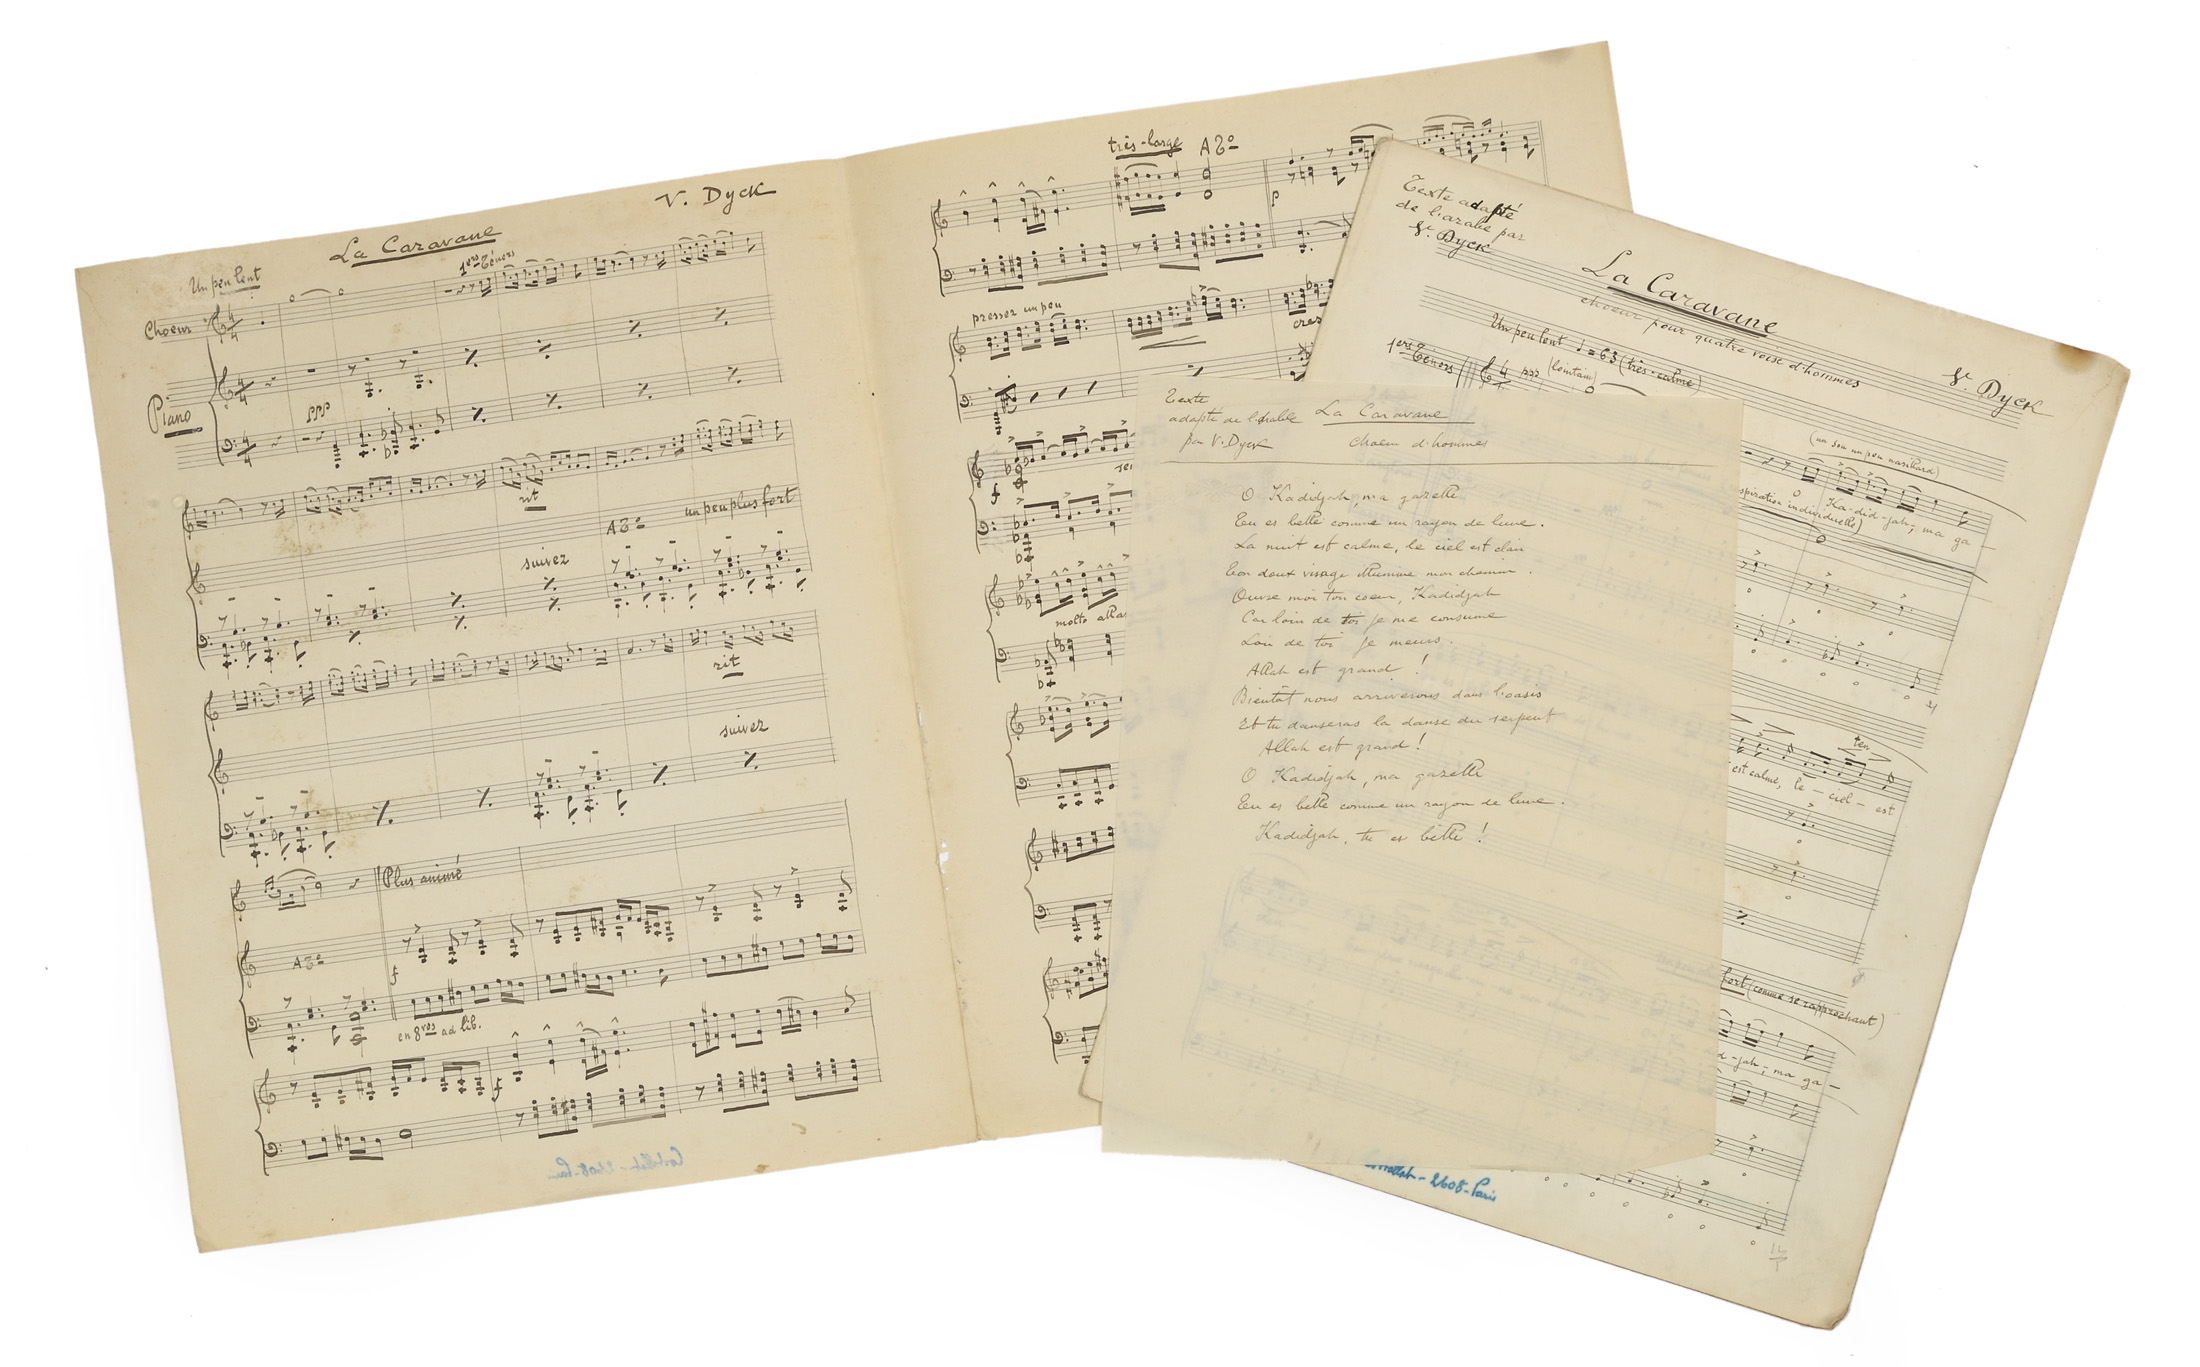 V. Dyck
La Caravane
Un peu lent
1ers Ténors
Choeur
4/4
Piano
ppp
rit
A To
un peu plus fort
suivez
rit
suivez
Plus animé
A To
f
en 8ves ad lib.
f
très-large
A To
p
presser un peu
cres
f
molto
Texte adapté
de l'arabe par
V. Dyck
La Caravane
choeur pour quatre voix d'hommes
V. Dyck
Un peu lent ♩ = 63 (très-calme)
1ers Ténors
ppp (lointain)
(un son un peu nasillard)
O Ka-did-jah, ma ga
spiration individuelle)
ten
est calme, le - ciel - est
fort (comme se rapprochant)
d-jah, ma ga-
2608-Paris
Texte
adapté de l'arabe
par V. Dyck
La Caravane
choeur d'hommes
O Kadidjah, ma gazelle
Tu es belle comme un rayon de lune.
La nuit est calme, le ciel est clair
Ton doux visage illumine mon chemin.
Ouvre moi ton coeur, Kadidjah
Car loin de toi je me consume
Loin de toi je meurs.
Allah est grand !
Bientôt nous arriverons dans l'oasis
Et tu danseras la danse du serpent
Allah est grand !
O Kadidjah, ma gazelle
Tu es belle comme un rayon de lune.
Kadidjah, tu es belle !